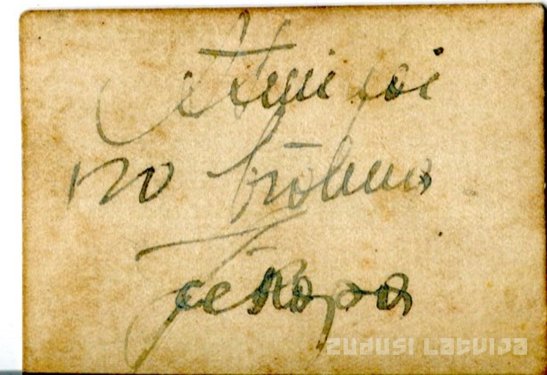 Atmiņai
no brāļa
Jēkaba
ZUDUSI LATVIJA